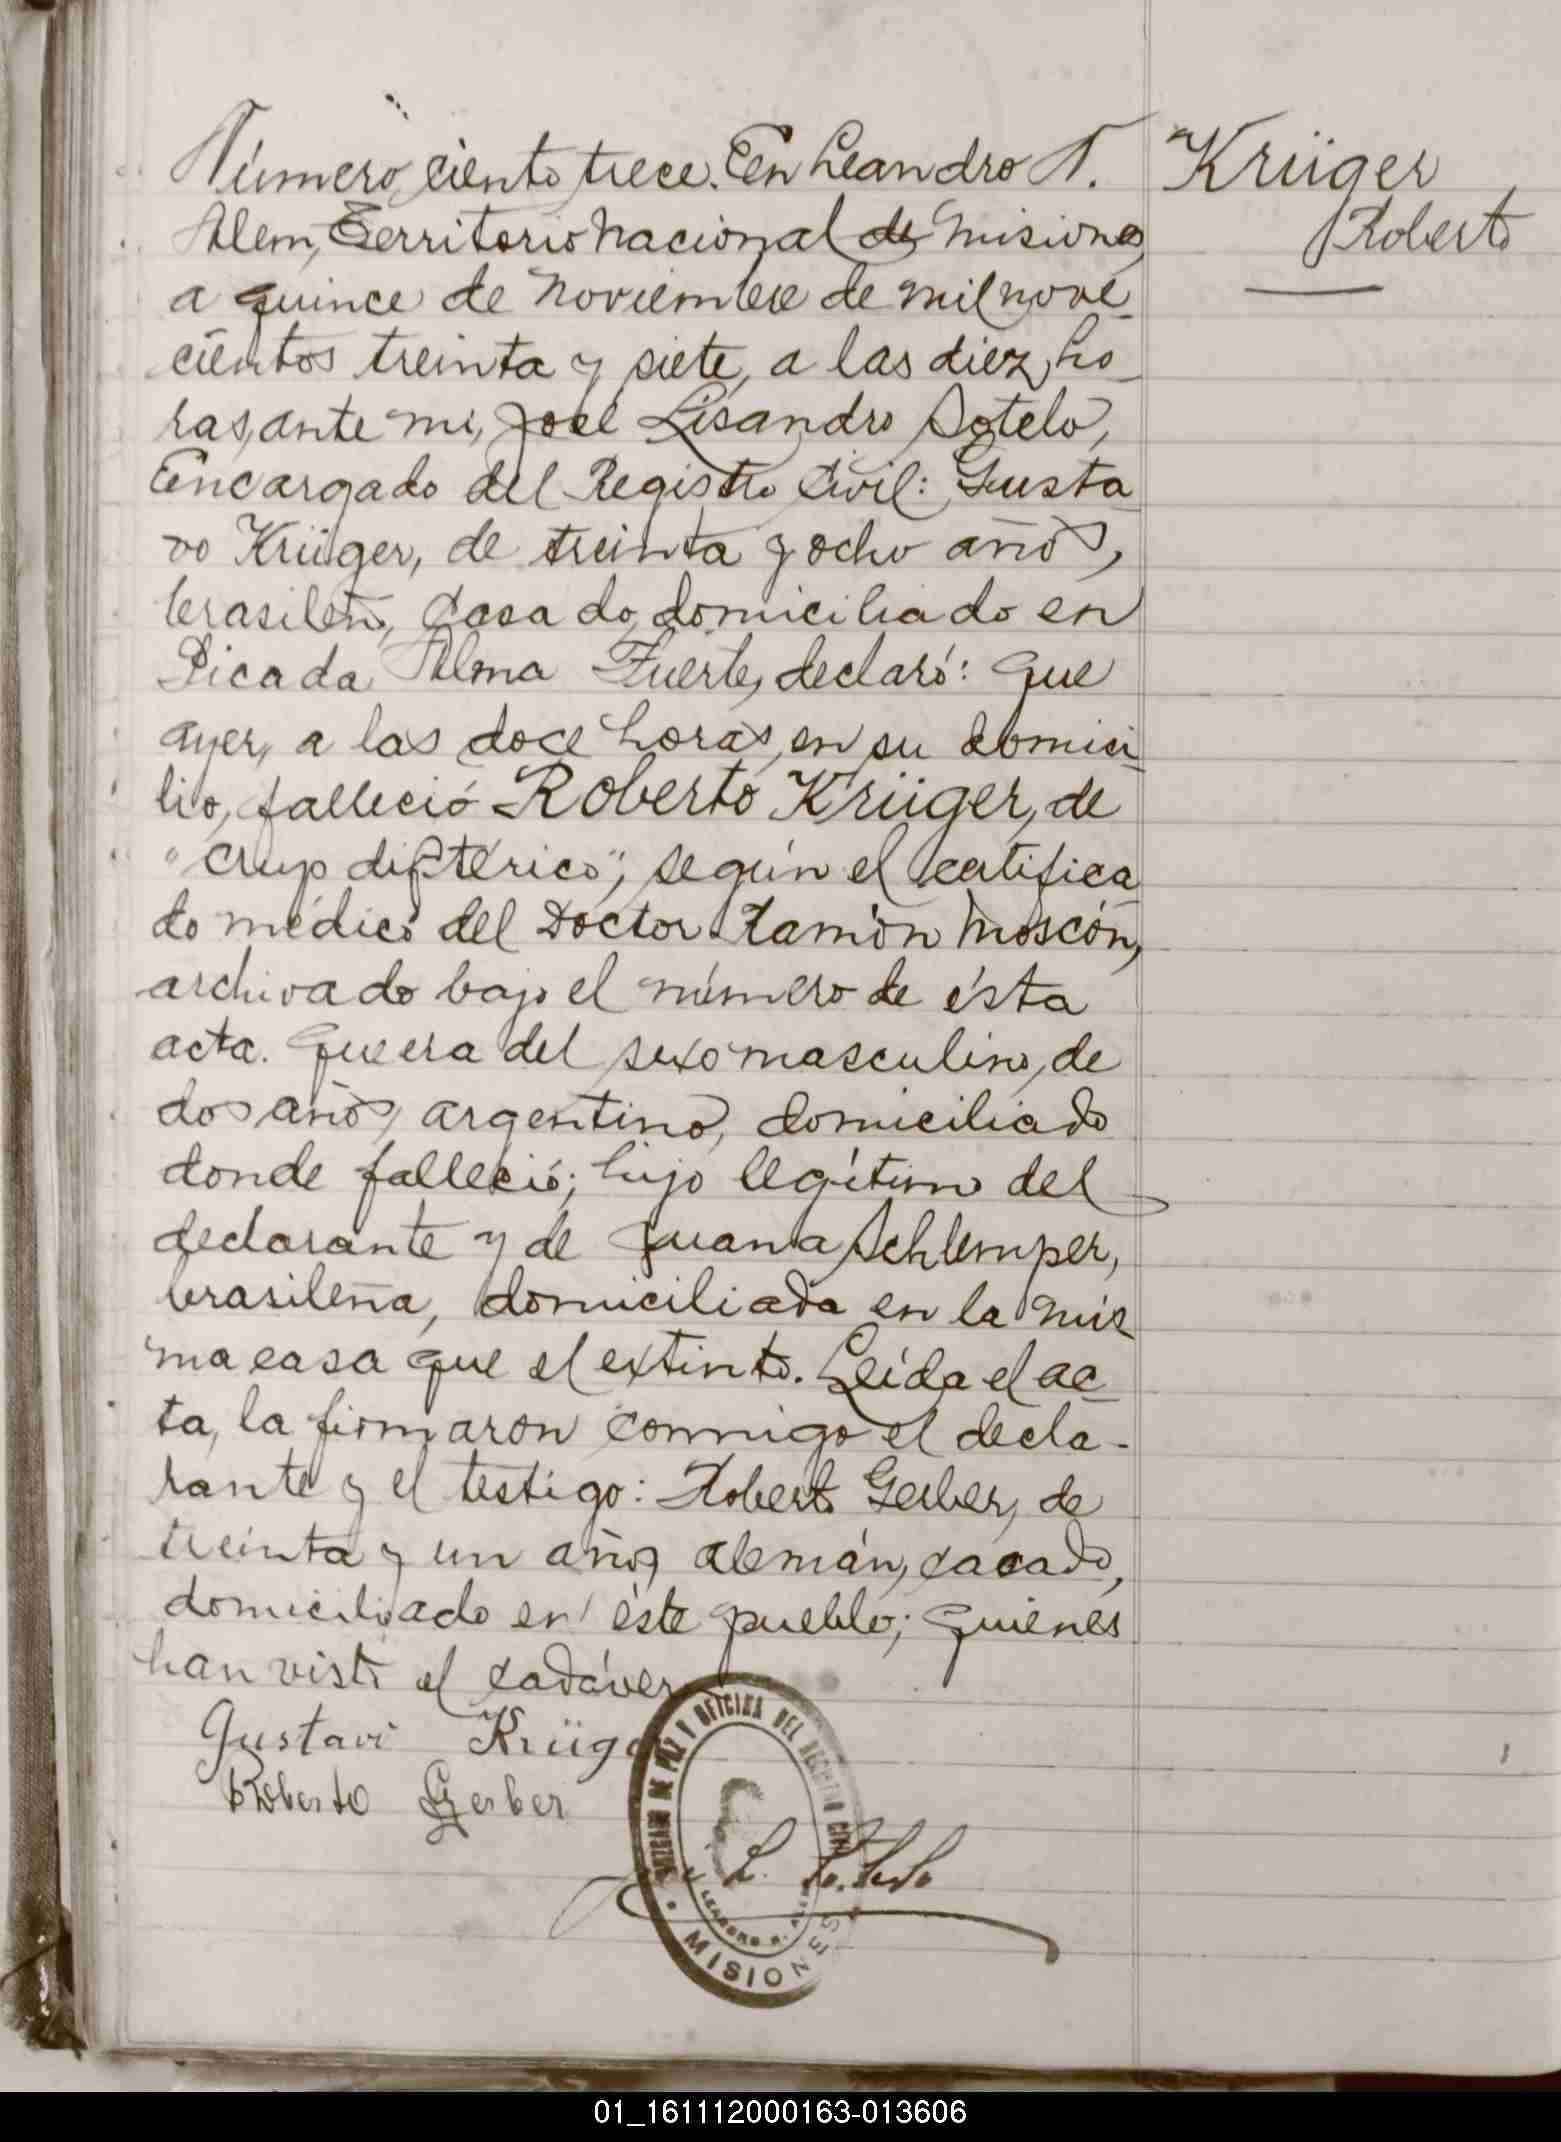 Número ciento trece. En Leandro N.
Alem, Territorio Nacional de Misiones,
a quince de Noviembre de mil nove_
cientos treinta y siete, a las diez ho_
ras, ante mi, José Lisandro Sotelo,
Encargado del Registro Civil: Gusta_
vo Krüger, de treinta y ocho años,
brasileño, casado, domiciliado en
Picada Alma Fuerte, declaró: Que
ayer, a las doce horas, en su domici_
lio, falleció Roberto Krüger, de
"crup diftérico", según el certifica_
do médico del Doctor Ramón Moscón,
archivado bajo el número de ésta
acta. Que era del sexo masculino, de
dos años, argentino, domiciliado
donde falleció; hijo legítimo del
declarante y de Juana Schlemper,
brasileña, domiciliada en la mis_
ma casa que el extinto. Leída el ac_
ta, la firmaron conmigo el decla-
rante y el testigo: Roberto Gerber, de
treinta y un años, alemán, casado,
domiciliado en éste pueblo; quienes
han visto el cadáver
Krüger
Roberto
Gustavo Krüger
Roberto Gerber
JUZGADO DE PAZ Y OFICINA DEL REGISTRO CIVIL
LEANDRO N. ALEM
MISIONES
J. L. Sotelo
01_161112000163-013606